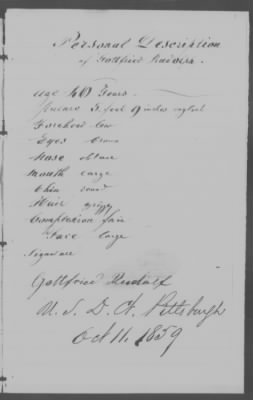 Personal Description
of Gottfried
age 40 Years
Stature 5 feet 9 inches english
Forehead low
Eyes brown
Nose obtuse
Mouth large
Chin round
Hair grizzy
Complexion fair
Face large
Signature
Gottfried Rudolf
U. S. D. Ct. Pittsburgh
Oct 11. 1859